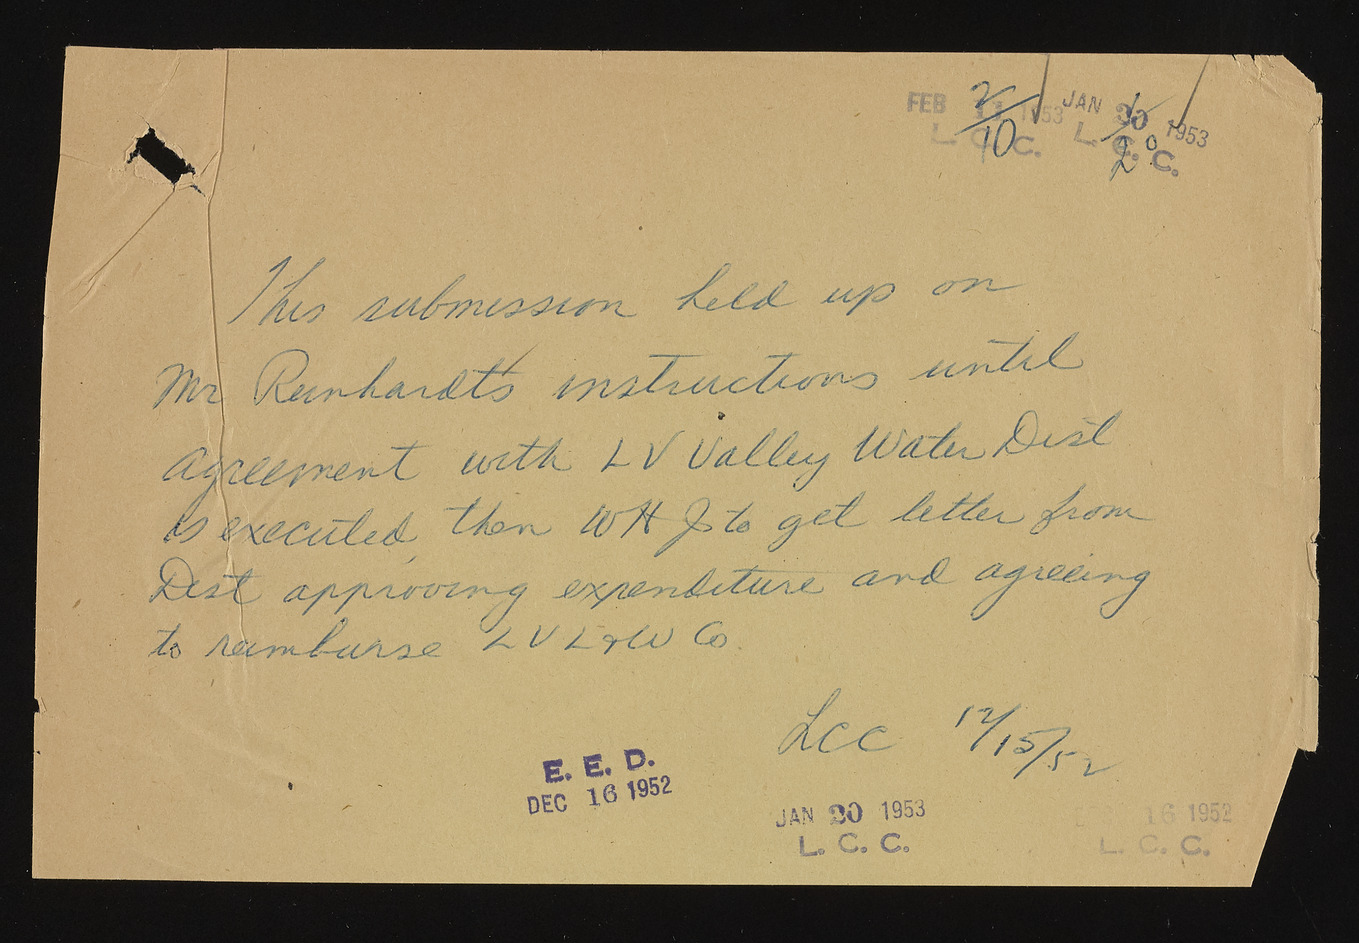 FEB 11 1953 JAN 30 1953
L. C. C. L. C. C.
2/10
This submission held up on
Mr Reinhardt's instructions until
agreement with LV Valley Water Dist
is executed, then WHJ to get letter from
Dist approving expenditure and agreeing
to reimburse LV L&W Co.
LCC 12/15/52
E. E. D.
DEC 16 1952
JAN 20 1953
L. C. C.
16 1952
L. C. C.